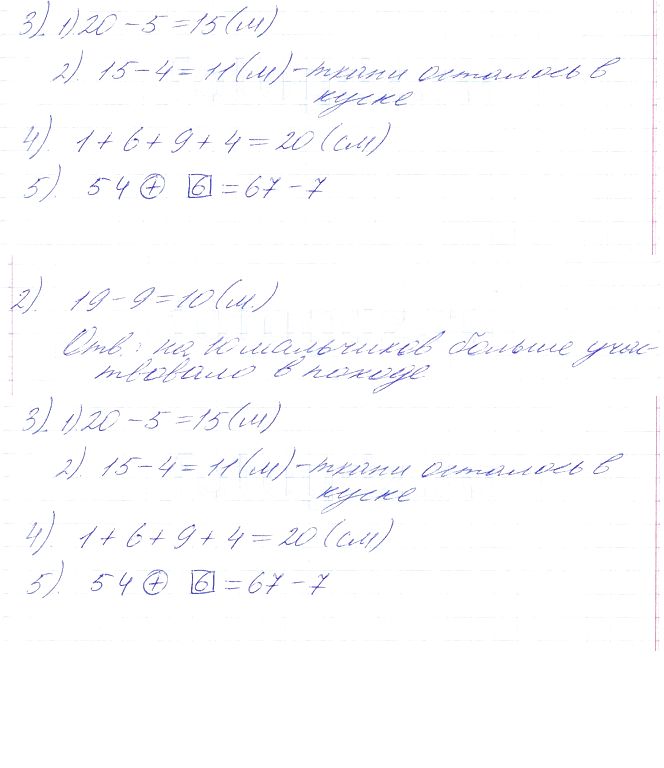 3). 1) 20 - 5 = 15 (м)
2). 15 - 4 = 11 (м) - ткани осталось в
куске
4). 1 + 6 + 9 + 4 = 20 (см)
5). 54 + 6 = 67 - 7
2). 19 - 9 = 10 (м.)
Отв.: на 10 мальчиков больше учас-
твовало в походе
3). 1) 20 - 5 = 15 (м)
2). 15 - 4 = 11 (м) - ткани осталось в
куске
4). 1 + 6 + 9 + 4 = 20 (см)
5). 54 + 6 = 67 - 7